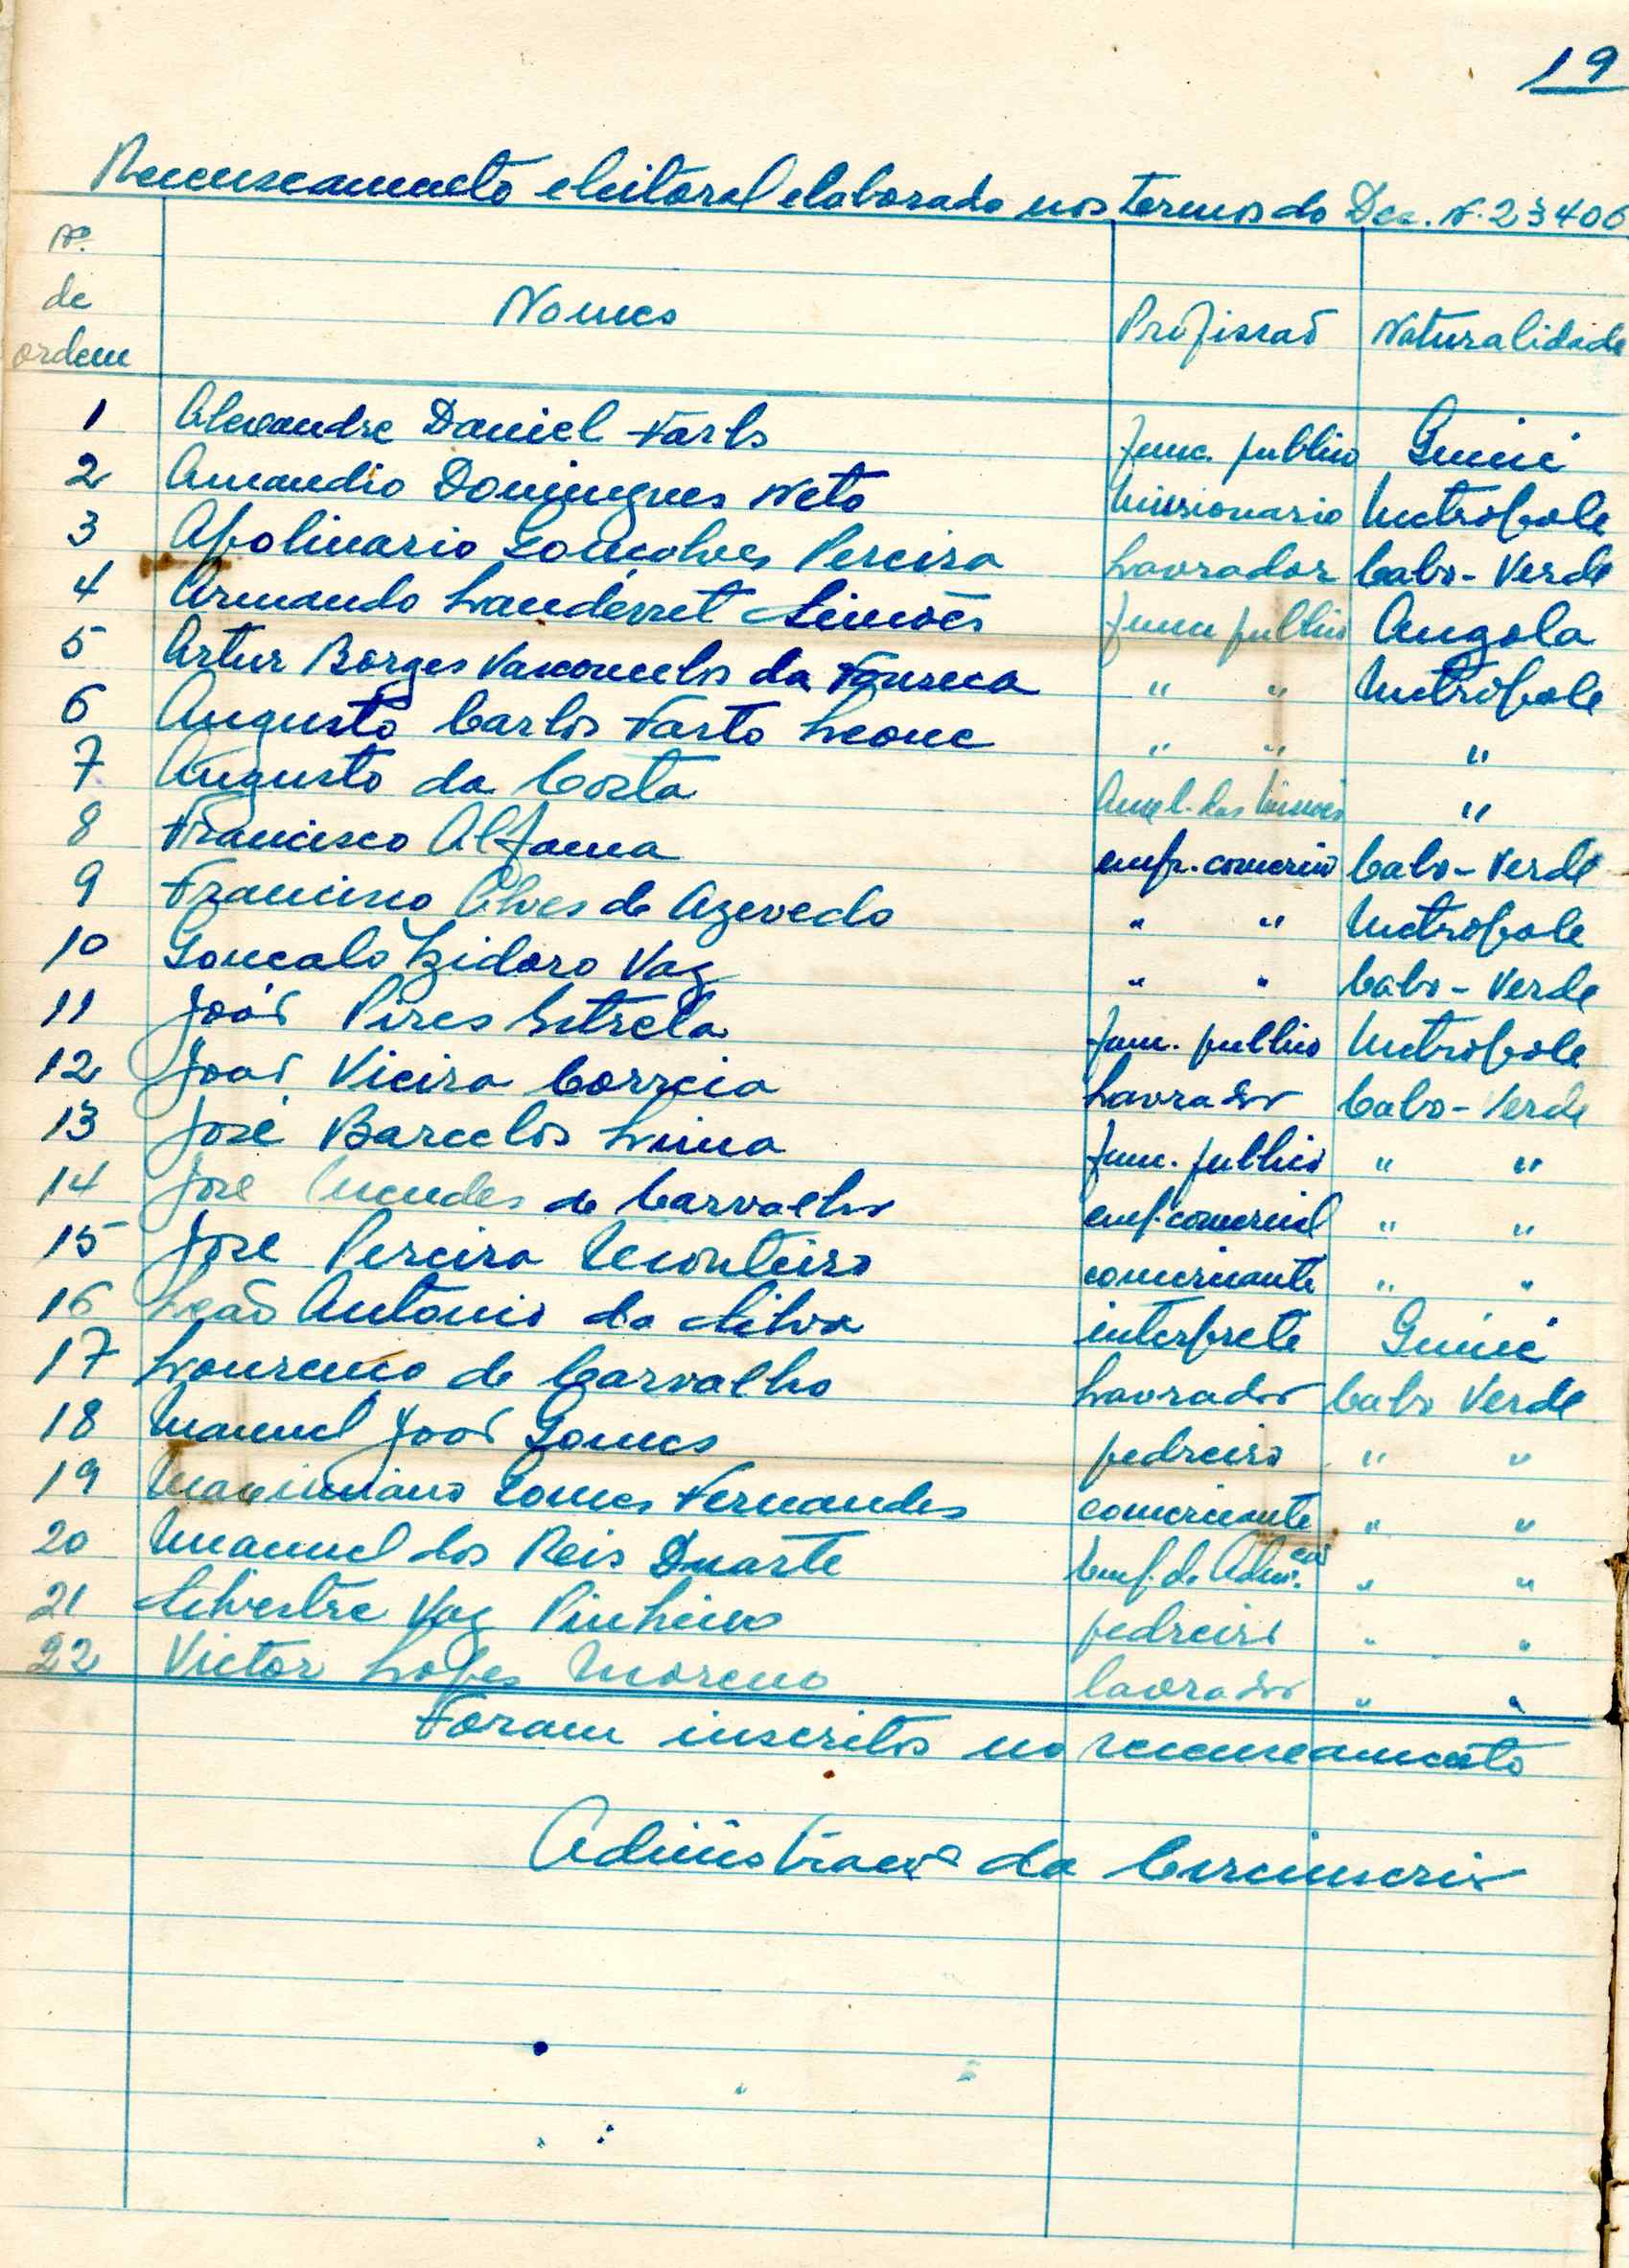 19
Recenseamento eleitoral elaborado nos termos do Dec. N. 23406
Nº
de
ordem
Nomes
Profissão
Naturalidade
1 Alexandre Daniel func. publico Guiné
2 Amandio Domingues Neto Missionario Metropole
3 Apolinario Gonçalves Pereira Lavrador Cabo-Verde
4 Armando Simões func publico Angola
5 Artur Borges Vasconcelos da Fonseca " " Metropole
6 Augusto Carlos Farto Leone " " "
7 Augusto da Costa "
8 Francisco Alfama emp. comercio Cabo-Verde
9 Francisco Alves de Azevedo " " Metropole
10 Goncalo Izidoro Vaz " " Cabo-Verde
11 João Pires Estrela func. publico Metropole
12 João Vieira Correia Lavrador Cabo-Verde
13 José Barcelos Lima func. publico " "
14 José Mendes de Carvalho emp. comercial " "
15 José Pereira Monteiro comerciante " "
16 Leão Antonio da Silva interprete Guiné
17 Lourenço de Carvalho Lavrador Cabo Verde
18 Manuel João Gomes pedreiro " "
19 Maximiano Gomes Fernandes comerciante " "
20 Manuel dos Reis Duarte Emp. de Adm.ção " "
21 Silvestre Vaz Pinheiro pedreiro " "
22 Victor Lopes Moreno lavrador " "
Foram inscritos no recenseamento
da